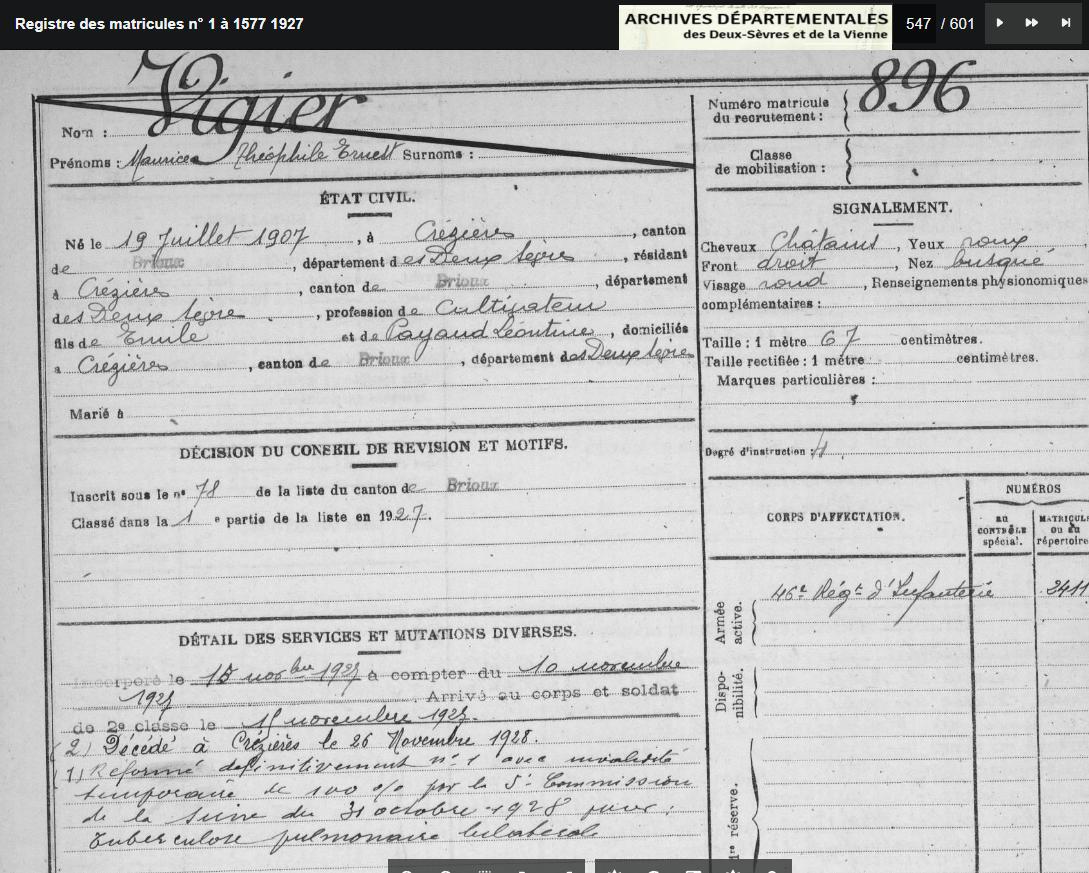 Registre des matricules n° 1 à 1577 1927
ARCHIVES DÉPARTEMENTALES
des Deux-Sèvres et de la Vienne
547 / 601
Nom : Vigier
Prénoms : Maurice Théophile Ernest Surnoms :
Numéro matricule
du recrutement : 896
Classe
de mobilisation :
ÉTAT CIVIL.
Né le 19 Juillet 1907, à Crézières, canton
de Brioux, département des Deux Sèvres, résidant
à Crézières, canton de Brioux, département
des Deux Sèvres, profession de Cultivateur
fils de Emile et de Payaud Léontine, domiciliés
à Crézières, canton de Brioux, département des Deux Sèvres
Marié à
SIGNALEMENT.
Cheveux Châtains, Yeux roux
Front droit, Nez busqué
Visage rond, Renseignements physionomiques
complémentaires :
Taille : 1 mètre 67 centimètres.
Taille rectifiée : 1 mètre centimètres.
Marques particulières :
Degré d'instruction :
DÉCISION DU CONSEIL DE REVISION ET MOTIFS.
Inscrit sous le n° 78 de la liste du canton de Brioux
Classé dans la 1e partie de la liste en 1927.
CORPS D'AFFECTATION.
NUMÉROS
au
CONTRÔLE
spécial.
MATRICULE
ou au
répertoire
Armée
active.
46e Régt d'Infanterie 2411
Dispo-
nibilité.
1re réserve.
DÉTAIL DES SERVICES ET MUTATIONS DIVERSES.
incorporé le novbre 1927 à compter du 10 novembre
1927 Arrivé au corps et soldat
de 2e classe le novembre 1927.
(2) Décédé à Crézières le 26 Novembre 1928.
(1) Réformé définitivement n° 1 avec invalidité
temporaire de 100 % par la 5e Commission
de la Seine du 31 octobre 1928 pour :
Tuberculose pulmonaire bilatérale